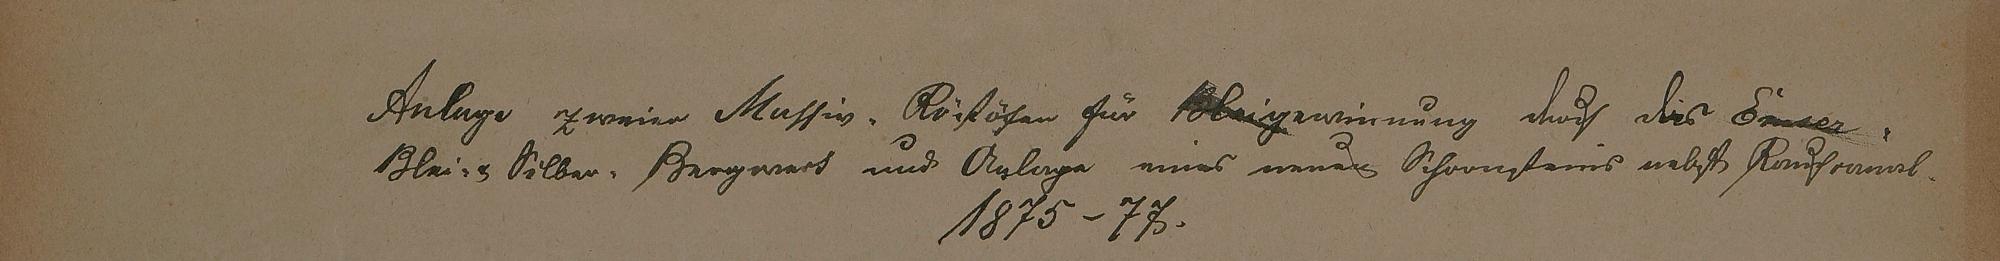 Anlage zweier Massiv-Röstöfen für Bleigewinnung durch das Emser
Blei- & Silber-Bergwerk und Anlage eines neuen Schornsteins nebst Rauchcanal.
1875-77.